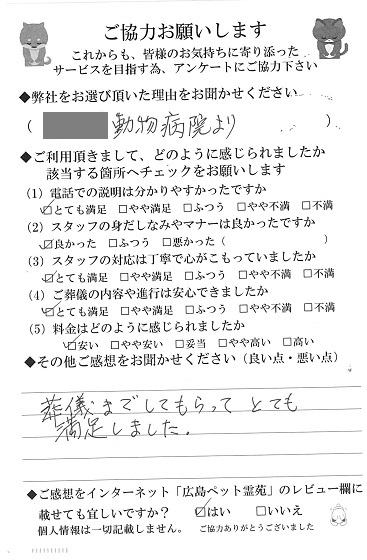 ご協力お願いします
これからも、皆様のお気持ちに寄り添った
サービスを目指す為、アンケートにご協力下さい
◆弊社をお選び頂いた理由をお聞かせください
( 動物病院より )
◆ご利用頂きまして、どのように感じられましたか
該当する箇所へチェックをお願いします
(1) 電話での説明は分かりやすかったですか
☑とても満足 □やや満足 □ふつう □やや不満 □不満
(2) スタッフの身だしなみやマナーは良かったですか
☑良かった □ふつう □悪かった ( )
(3) スタッフの対応は丁寧で心がこもっていましたか
☑とても満足 □やや満足 □ふつう □やや不満 □不満
(4) ご葬儀の内容や進行は安心できましたか
☑とても満足 □やや満足 □ふつう □やや不満 □不満
(5) 料金はどのように感じられましたか
☑安い □やや安い □妥当 □やや高い □高い
◆その他ご感想をお聞かせください（良い点・悪い点）
葬儀までしてもらって とても
満足しました.
◆ご感想をインターネット「広島ペット霊苑」のレビュー欄に
載せても宜しいですか？ ☑はい □いいえ
個人情報は一切記載しません。 ご協力ありがとうございました